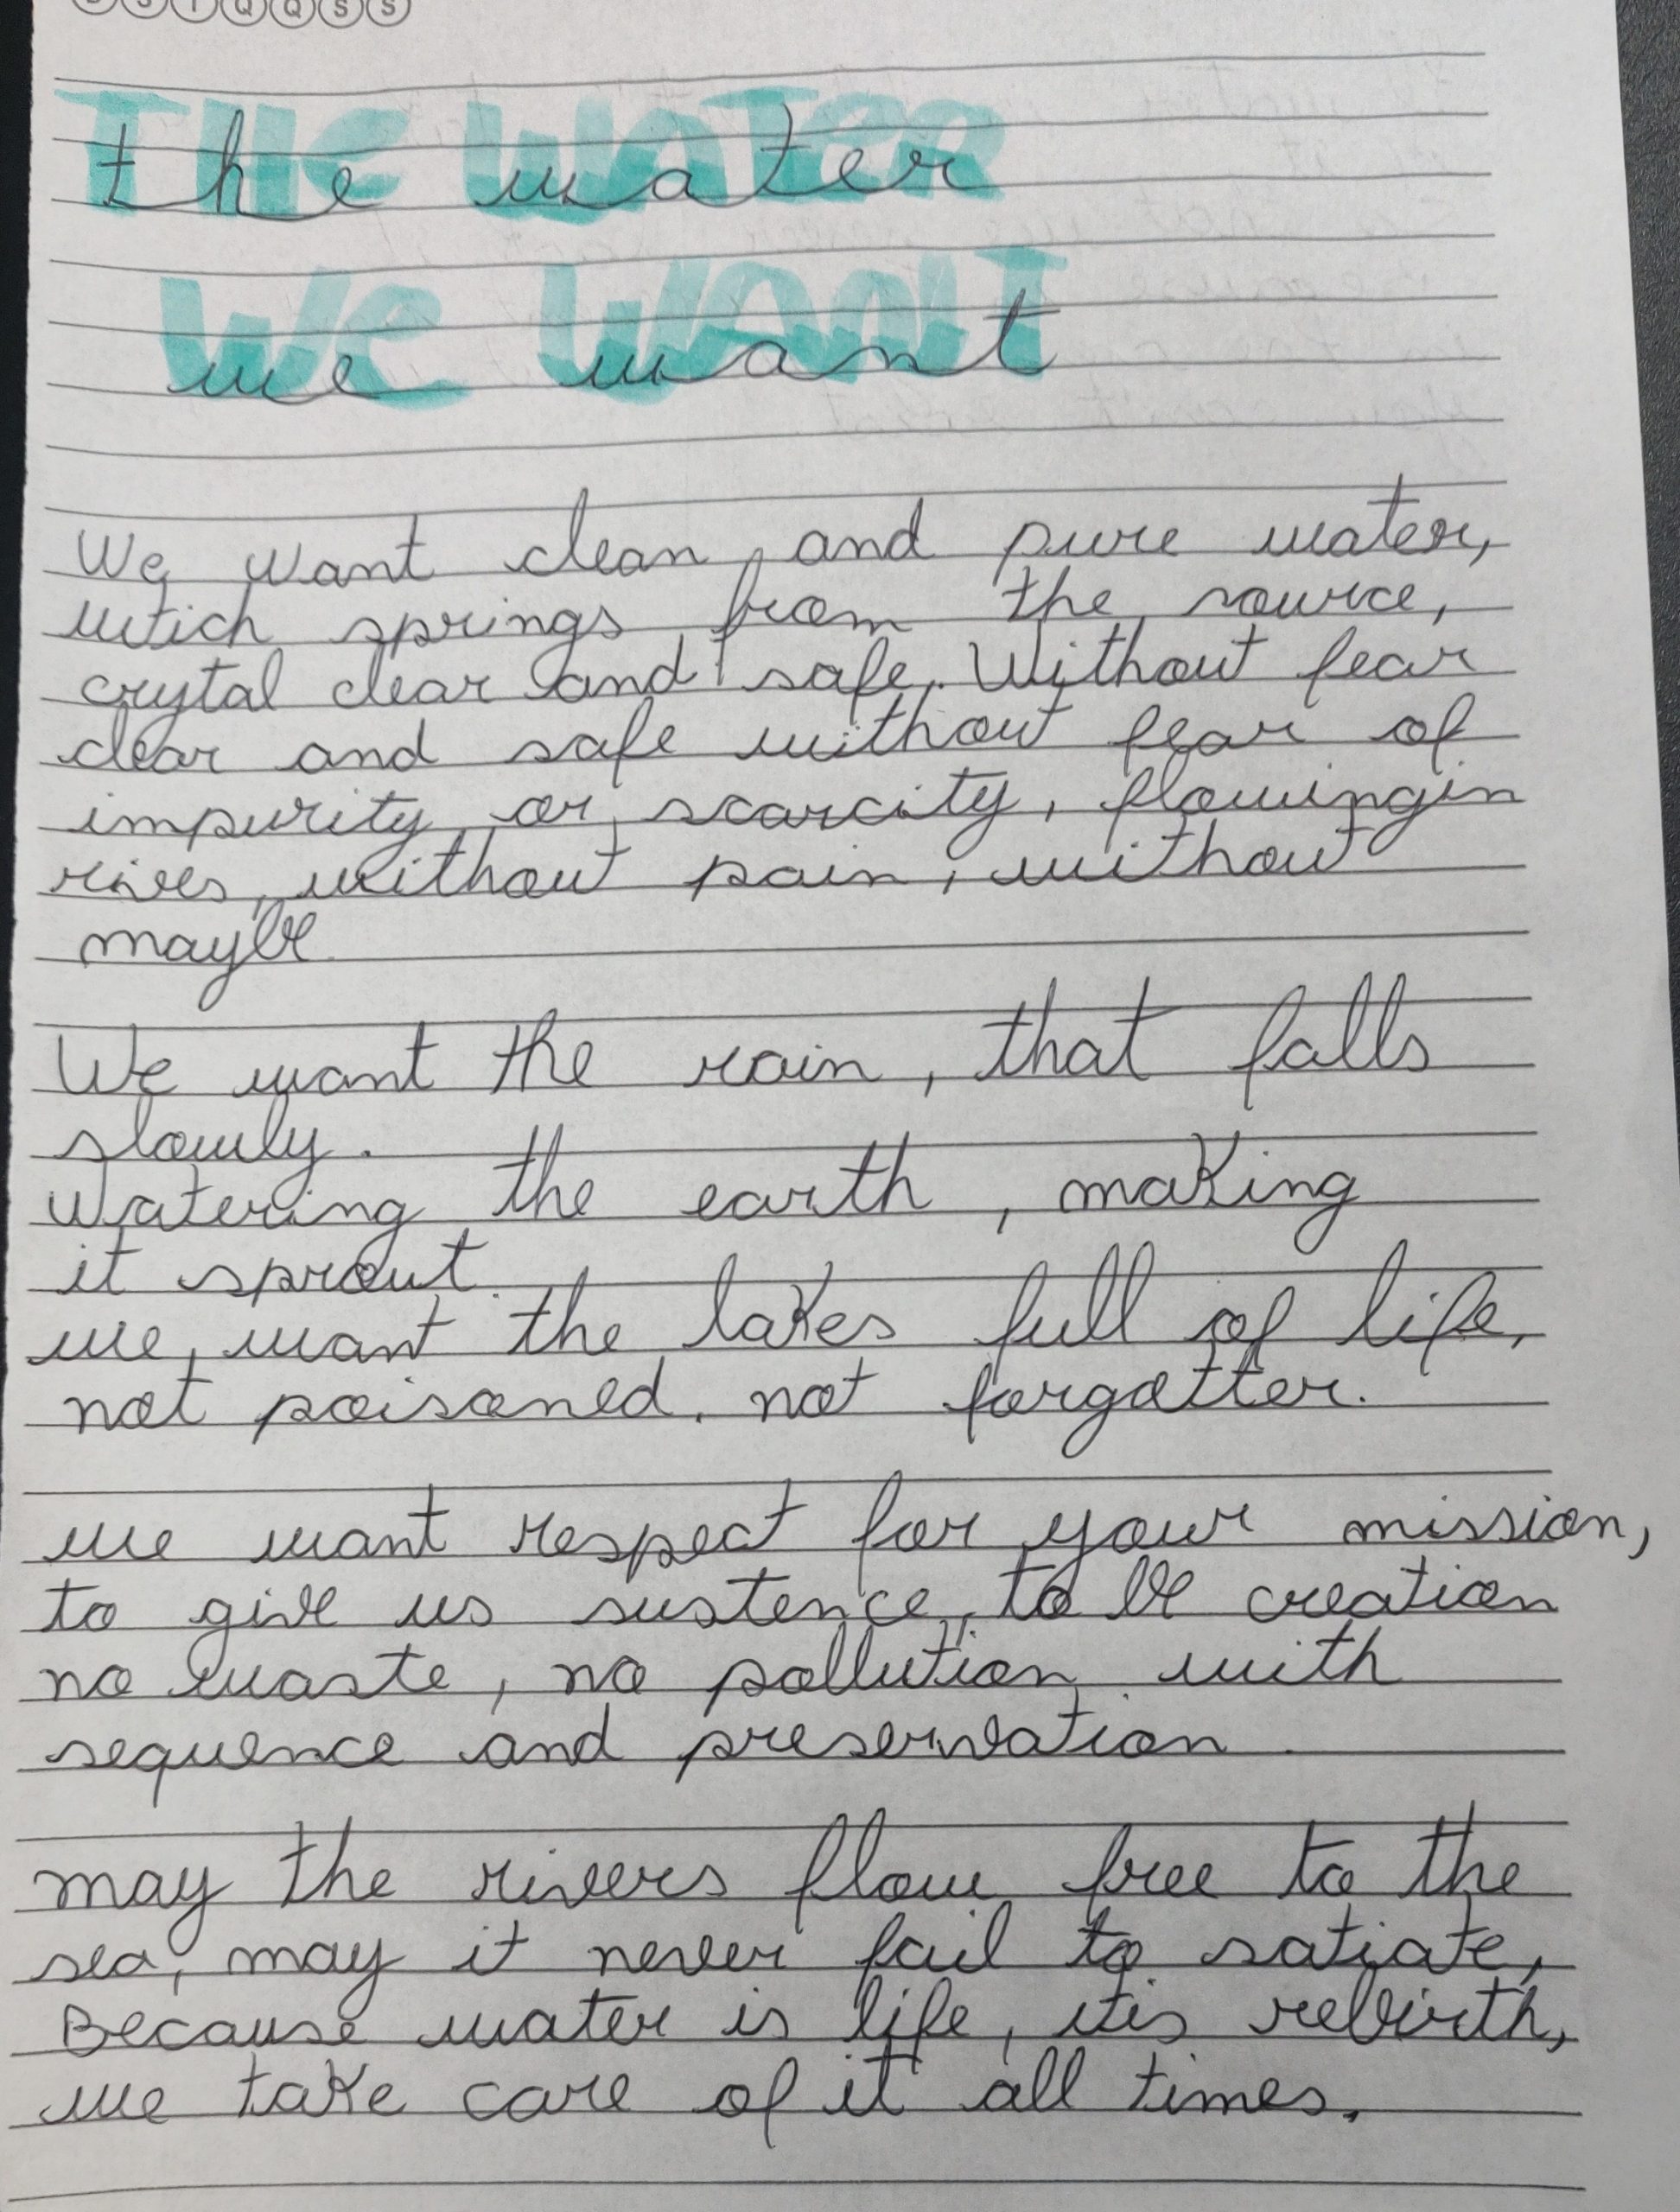 D S T Q Q S S
THE WATER
the water
WE WANT
we want
We want clean and pure water,
wtich springs from the source,
crytal clear and safe. Without fear
clear and safe without fear of
impurity or scarcity, flowingin
rives, without pain, without
maybe.
We want the rain, that falls
slowly.
Watering the earth, making
it sprout.
we want the lakes full of life,
not poisoned, not forgotter.
we want respect for your mission,
to give us sustence, to be creation
no waste, no pollution, with
sequence and preservation.
may the rivers flow free to the
sea, may it never fail to satiate,
Because water is life, itis rebirth,
we take care of it all times.